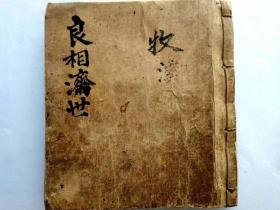 牧
良相濟世